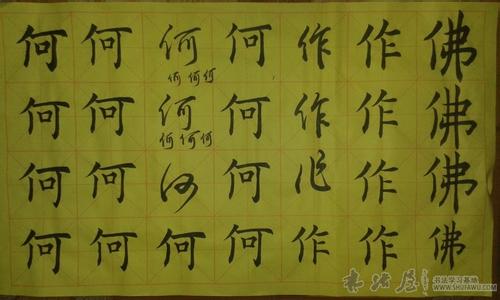 佛佛佛佛
作作作作
作作作作
何何何何
何
何何何
何
何何何
何何
何何何何
何何何何
书法屋
书法学习基地
WWW.SHUFAWU.COM